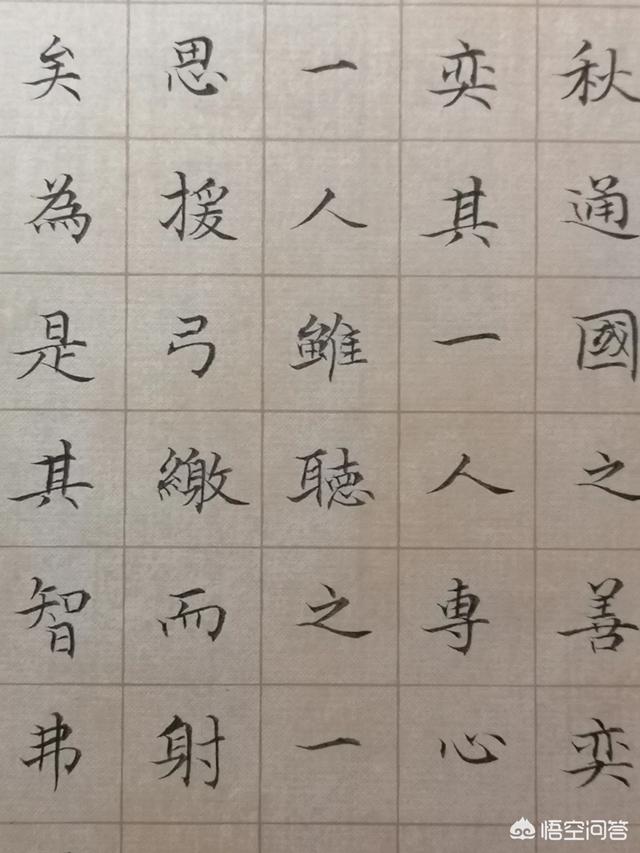 秋通國之善奕
奕其一人専心
一人雖聴之一
思援弓繳而射
矣為是其智弗
悟空问答